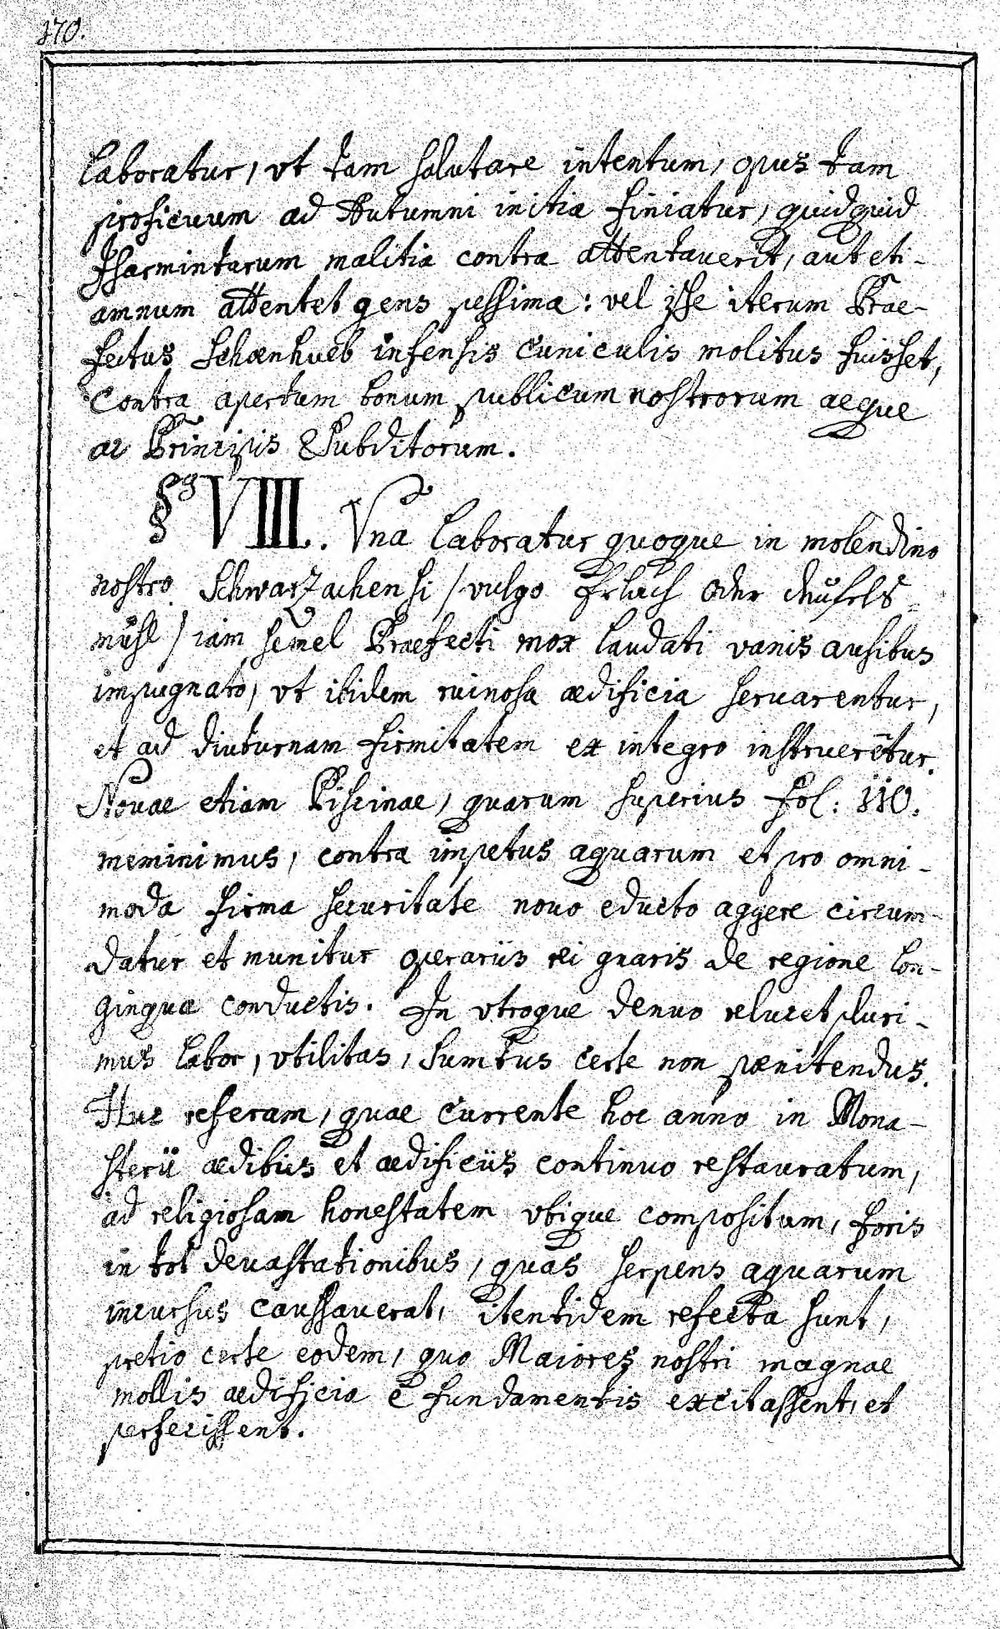 170.
laboratur, vt tam salutare intentum, opus tam
proficuum ad Autumni initia finiatur, quidquid
malitia contra attentauerit, aut eti-
amnum attentet gens pessima: vel ipse iterum Prae-
fectus Schoenhueb infensis cuniculis molitus fuisset,
contra apertum bonum publicum nostrorum aeque
ac Principis & Subditorum.
§g VIII. Vna laboratur quoque in molendino
nostro Schwarzachensi / vulgo Erlach oder deüfels-
mühl / iam semel Praefecti mox laudati vanis ausibus
impugnato, vt ibidem ruinosa ædificia seruarentur,
et ad diuturnam firmitatem ex integro instruerẽtur.
Nouae etiam Piscinae, quarum superius fol: 110.
meminimus, contra impetus aquarum et pro omni-
moda firma securitate nouo educto aggere circum-
datur et munitur operariis rei gnaris de regione lon-
ginqua conductis. In vtroque denuo relucet pluri-
mus labor, vtilitas, sumtus certe non pœnitendus.
Huc referam, quae currente hoc anno in Mona-
sterii ædibus et ædificiis continuo restauratum,
ad religiosam honestatem vbique compositum, foris
in tot deuastationibus, quas serpens aquarum
incursus caussauerat, itentidem refecta sunt,
pretio certe eodem, quo Maiores nostri magnae
mollis ædificia e fundamentis excitassent, et
perfecissent.